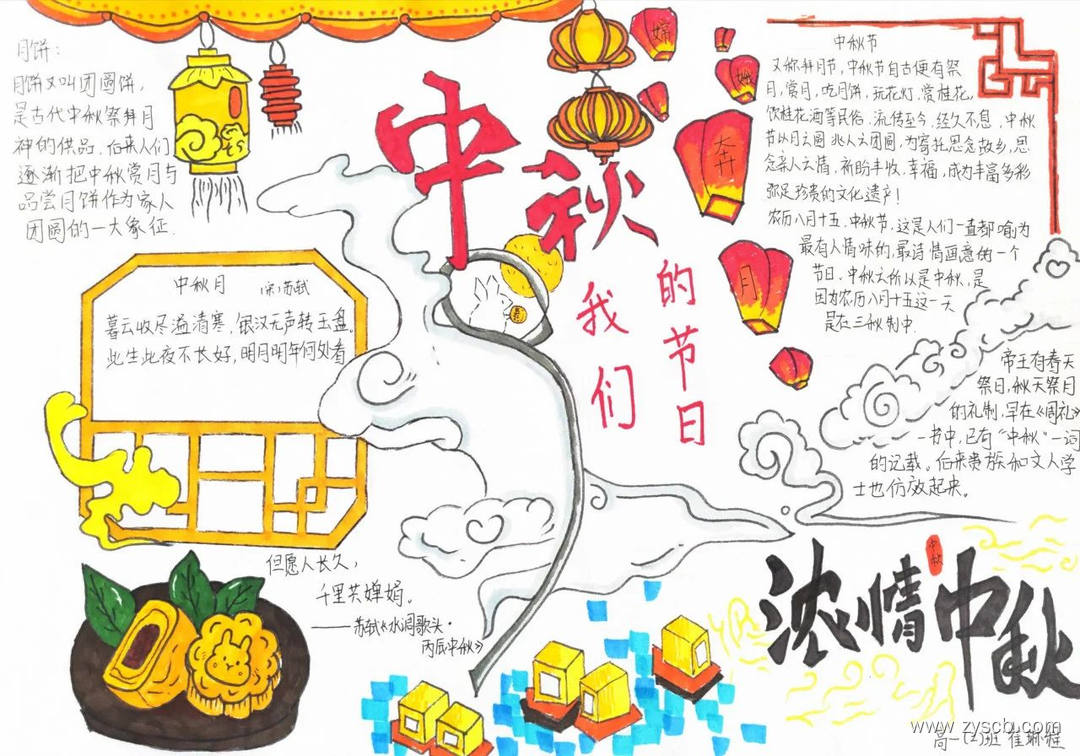 月饼：
月饼又叫团圆饼，
是古代中秋祭拜月
神的供品。后来人们
逐渐把中秋赏月与
品尝月饼作为家人
团圆的一大象征.
中秋
我们
的节日
嫦
娥
奔
月
中秋节
又称拜月节，中秋节自古便有祭
月，赏月，吃月饼，玩花灯，赏桂花，
饮桂花酒等民俗，流传至今，经久不息，中秋
节以月之圆兆人之团圆，为寄托思念故乡，思
念亲人之情，祈盼丰收，幸福，成为丰富多彩
弥足珍贵的文化遗产！
农历八月十五，中秋节，这是人们一直都喻为
最有人情味的，最诗情画意的一个
节日，中秋之所以是中秋，是
因为农历八月十五这一天
是在三秋制中.
帝王有春天
祭日，秋天祭月
的礼制，早在《周礼》
一书中，已有“中秋”一词
的记载。后来贵族和文人学
士也仿效起来。
中秋月 宋·苏轼
暮云收尽溢清寒，银汉无声转玉盘。
此生此夜不长好，明月明年何处看
但愿人长久，
千里共婵娟。
——苏轼《水调歌头·
丙辰中秋》
中秋
浓情中秋
www.zyscb.com
高一(2)班